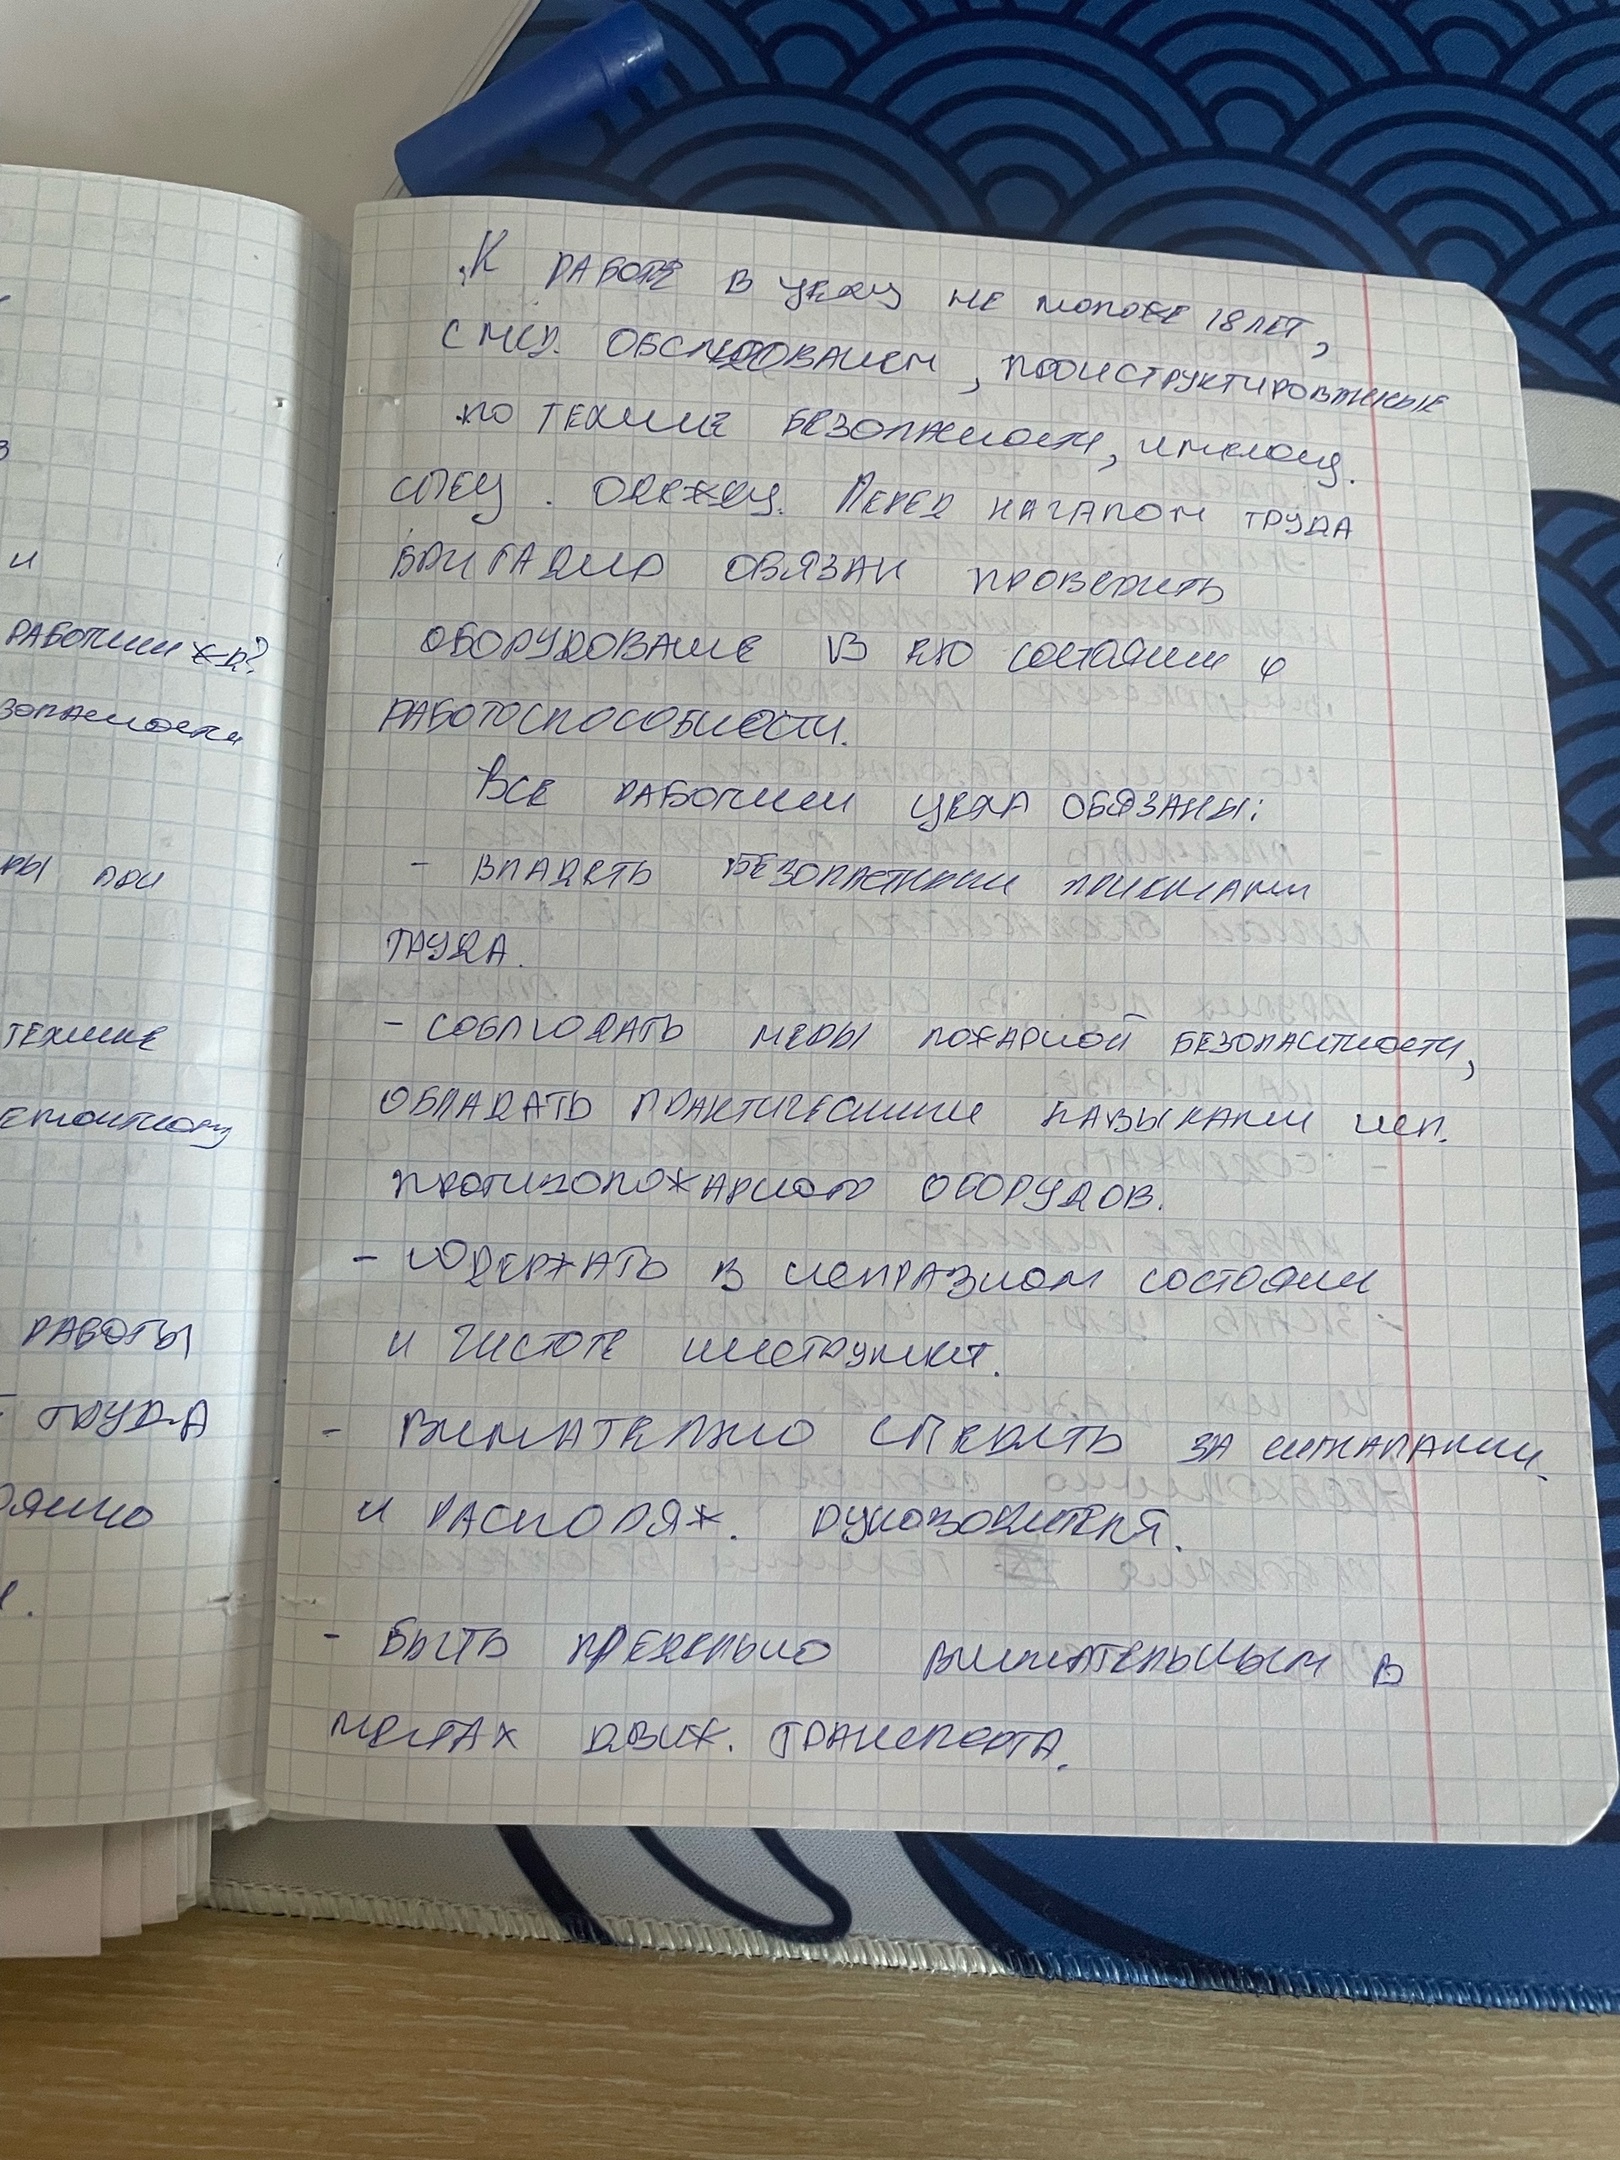 К работе в цеху не моложе 18 лет,
с мед. обследованием, проиструктированные
по технике безопасности, имеющ.
спец. одежду. Перед началом труда
бригадир обязан проверить
оборудование в его состоянии
работоспособности.
Все работники цеха обязаны:
- владеть безопастными приемами
труда.
- соблюдать меры пожарной безопастности,
обладать практическими навыками исп.
противопожарного оборудов.
- содержать в исправном состоянии
и чистоте инструмент.
- внимательно следить за сигналами
и распоряж. руководителя.
- быть предельно внимательным в
местах движ. транспорта.
и
работники
зопасности
ры при
технике
работы
труда